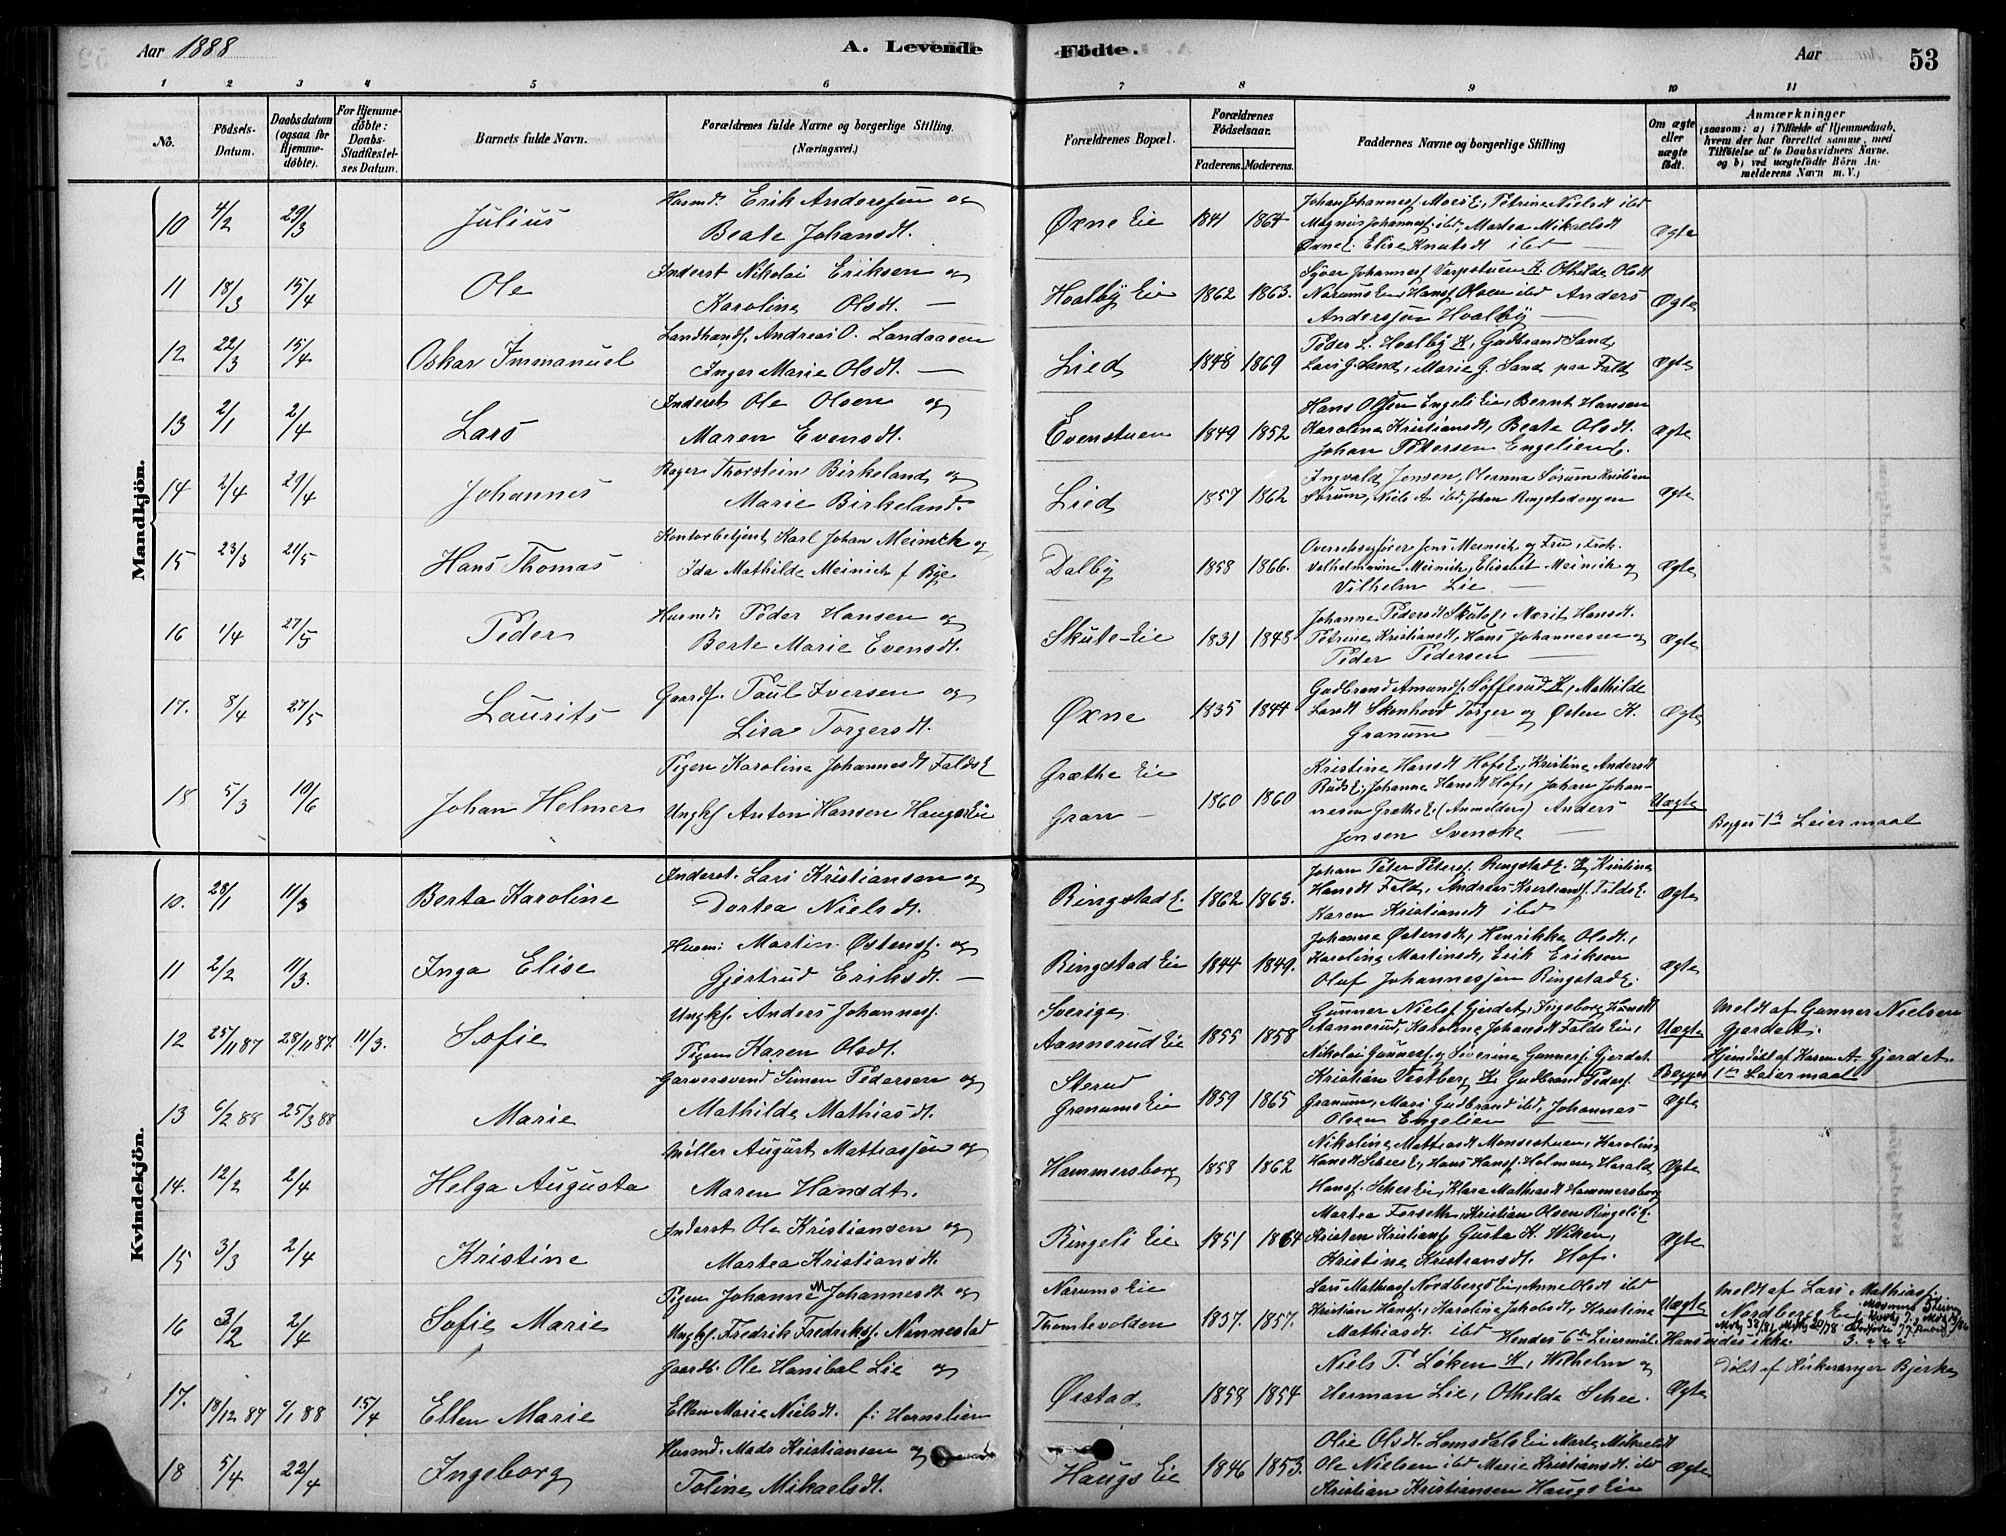 Aar 1888
A. Levende
Födte.
Aar
53
1 2 3 4 5 6 7 8 9 10 11
No.
Födsels-
Datum.
Daabsdatum
(ogsaa for
Hjemme-
døbte).
For Hjemme-
døbte:
Daabs-
Stadfæstel-
ses Datum.
Barnets fulde Navn.
Forældrenes fulde Navne og borgerlige Stilling.
(Næringsvei.)
Forældrenes Bopæl.
Forældrenes
Födselsaar.
Faderens. Moderens.
Faddernes Navne og borgerlige Stilling
Om ægte
eller
uægte
født.
Anmærkninger
(saasom: a) i Tilfælde af Hjemmedaab,
hvem der har forrettet samme, med
Tilföielse af to Daabsvidners Navne,
og b) ved uægtefödte Börn An-
melderens Navn m. V.)
Mandkjön.
10 4/2 29/3 Julius
Husmd. Erik Anderssen og
Beate Johansdt.
Øxne Eie 1841 1864
Johan Johannesf. Moes E, Petrine Nielsdt ibd
Magnus Johannesf. ibd, Martea Mikaelsdt
Øxne E. Elise Knutsdt ibd —
Ægte
11 18/3 15/4 Ole
Inderst Nikolai Eriksen og
Karoline Olsdt. —
Hvalby Eie 1862 1863.
Syver Johannesf Varpstuen K. Othilde Olsdt
Narums Eie, Hans Olsen ibd Anders
Anderssen Hvalby —
Ægte
12 22/3 15/4 Oskar Immanuel
Landhandf. Andreas O. Landaasen
Inger Marie Olsdt. —
Lied 1848 1869
Peder L. Hvalby K, Gudbrand Sand,
Lars G. Sand, Marie G. Sand paa Fald
Ægte
13 2/1 2/4 Lars
Inderst Ole Olsen og
Maren Evensdt.
Evenstuen 1849 1852
Hans Olsen Engelis Eie, Bernt Hansen
Karoline Kristiansdt, Beate Olsdt.
Johan Petersen Engelien E.
Ægte
14 2/4 29/4 Johannes
Bager Thorstein Birkeland og
Marie Birkeland.
Lied 1857 1862
Ingvald Jensen, Oleanna Sørum Kristian
Sørum, Niels A. ibd, Johan Ringstadengen
Ægte
15 23/3 21/5 Hans Thomas
Kontorbetjent Karl Johan Meinich og
Ida Mathilde Meinich f Bye
Dalby 1858 1866.
Overretssagfører Jens Meinich og Fru, Frk.
Vilhelmine Meinich, Elisabet Meinich og
Vilhelm Lie —
Ægte
16 1/4 27/5 Peder
Husmd. Peder Hansen og
Berte Marie Evensdt.
Skute-Eie 1831 1848
Johanne Pedersdt Skute E, Marit Hansdt.
Petrine Kristiansdt, Hans Johannesen og
Peder Pedersen —
Ægte
17. 8/4 27/5 Laurits
Gaardf. Poul Iversen og
Lisa Torgersdt.
Øxne 1835 1844
Gudbrand Amundf. Sofferud K, Mathilde
Larsdt Skonhovd Torger og Østen K.
Granum —
Ægte
18 5/3 10/6 Johan Helmer
Pigen Karoline Johannesdt Falds E
Ungkf Anton Hansen Haugs Eie
Græthe Eie
Gran —
1860 1860
Kristine Hansdt Hofs E, Kristine Andersdt
Ruds E, Johanne Hansdt Hofs, Johan Johan-
nesen Grethe E (Anmelder) Anders
Jensen Svenske —
Uægte
Begges 1ste Leiermaal
Kvindekjön.
10. 28/1 11/3 Berta Karoline
Inderst. Lars Kristiansen og
Dortea Nielsdt.
Ringstad E. 1862 1863.
Johan Peter Petersf. Ringstad E. K, Kristine
Hansdt Fald, Andreas Kristiansf. Falds E.
Karen Kristiansdt ibd
Ægte
11 2/2 11/3. Inga Elise
Husm: Martin Østensf. og
Gjertrud Eriksdt. —
Ringstad Eie 1844 1849.
Johanne Østensdt, Henrikke Olsdt.,
Karoline Martinsdt, Erik Eriksen
Oluf Johannessen Ringstad E.
Ægte
12 25/11 87 28/11 87. 11/3. Sofie
Ungkf. Anders Johannesf.
Pigen Karen Olsdt.
Sverige.
Aannerud Eie 1855 1858
Gunner Nielsf Gjerdet, Ingeborg Larsdt
Aannerud, Karoline Johansdt Falds Eie,
Nikolai Gunnersf. og Severine Gunnersf. Gjerdet.
Uægte
Begges 1ste Leiermaal
Meldt af Gunner Nielsen
Gjerdet.
Hjemdøbt af Karen A. Gjerdet.
13 6/2 88 25/3 88 Marie
Garversvend Simen Pedersen og
Mathilde Mathiasdt.
Sterud
Granums Eie 1859 1865
Kristian Vestberg K, Gudbrand Pedersf.
Granum, Mari Gudbrand ibd, Johannes
Olsen Engelien —
Ægte
14. 12/2 2/4 Helga Augusta
Møller August Mathiassen og
Maren Hansdt.
Hammersborg 1858 1862
Nikoline Mathiasdt Monsestuen, Karoline
Hansdt Schees E, Hans Hansf. Holmen, Harald
Hansf. Schees Eie, Klara Mathiasdt Hammersborg
Ægte
15 3/3 2/4 Kristine
Inderst Ole Kristiansen og
Martea Kristiansdt.
Ringelis Eie 1851 1864
Martea Forseth, Kristian Olsen Ringeli E.
Kristen Kristiansf Gusta K. Wiken,
Kristine Kristiansdt. Hof.
Ægte
16 3/2 2/4 Sofie Marie
Pigen Johanne M Johannesdt og
Ungkf. Fredrik Fredriksf. Nannestad
Narums Eie
Thomtevolden 1857. 1857.
Lars Mathiasf Nordbergs Eie, Anne Olsdt ibd
Kristian Hansf, Karoline Jakobsdt, Kristine
Mathiasdt ibd Hendes 6te Leiermaal. Hans vides ikke
Uægte
Meldt af Lars Mathiasf.
Nordbergs Eie
17. 18/12 87 6/1 88 15/4 Ellen Marie
Gaardb. Ole Hanibal Lie og
Ellen Marie Nielsdt. f: Hornslien
Ørstad 1858 1854
Niels T. Løken K, Wilhelm og
Herman Lie, Othilde Schee.
Ægte
Døbt af Kirkesanger Bjerke
18 5/4 22/4 Ingeborg
Husmd. Mads Kristiansen og
Toline Mikaelsdt.
Haugs Eie 1846 1853.
Olie Olsdt. Lomsdals Eie Marte Mikaelsdt
Ole Nielsen ibd Marie Kristiansdt ibd
Kristian Kristiansen Haugs Eie
Ægte